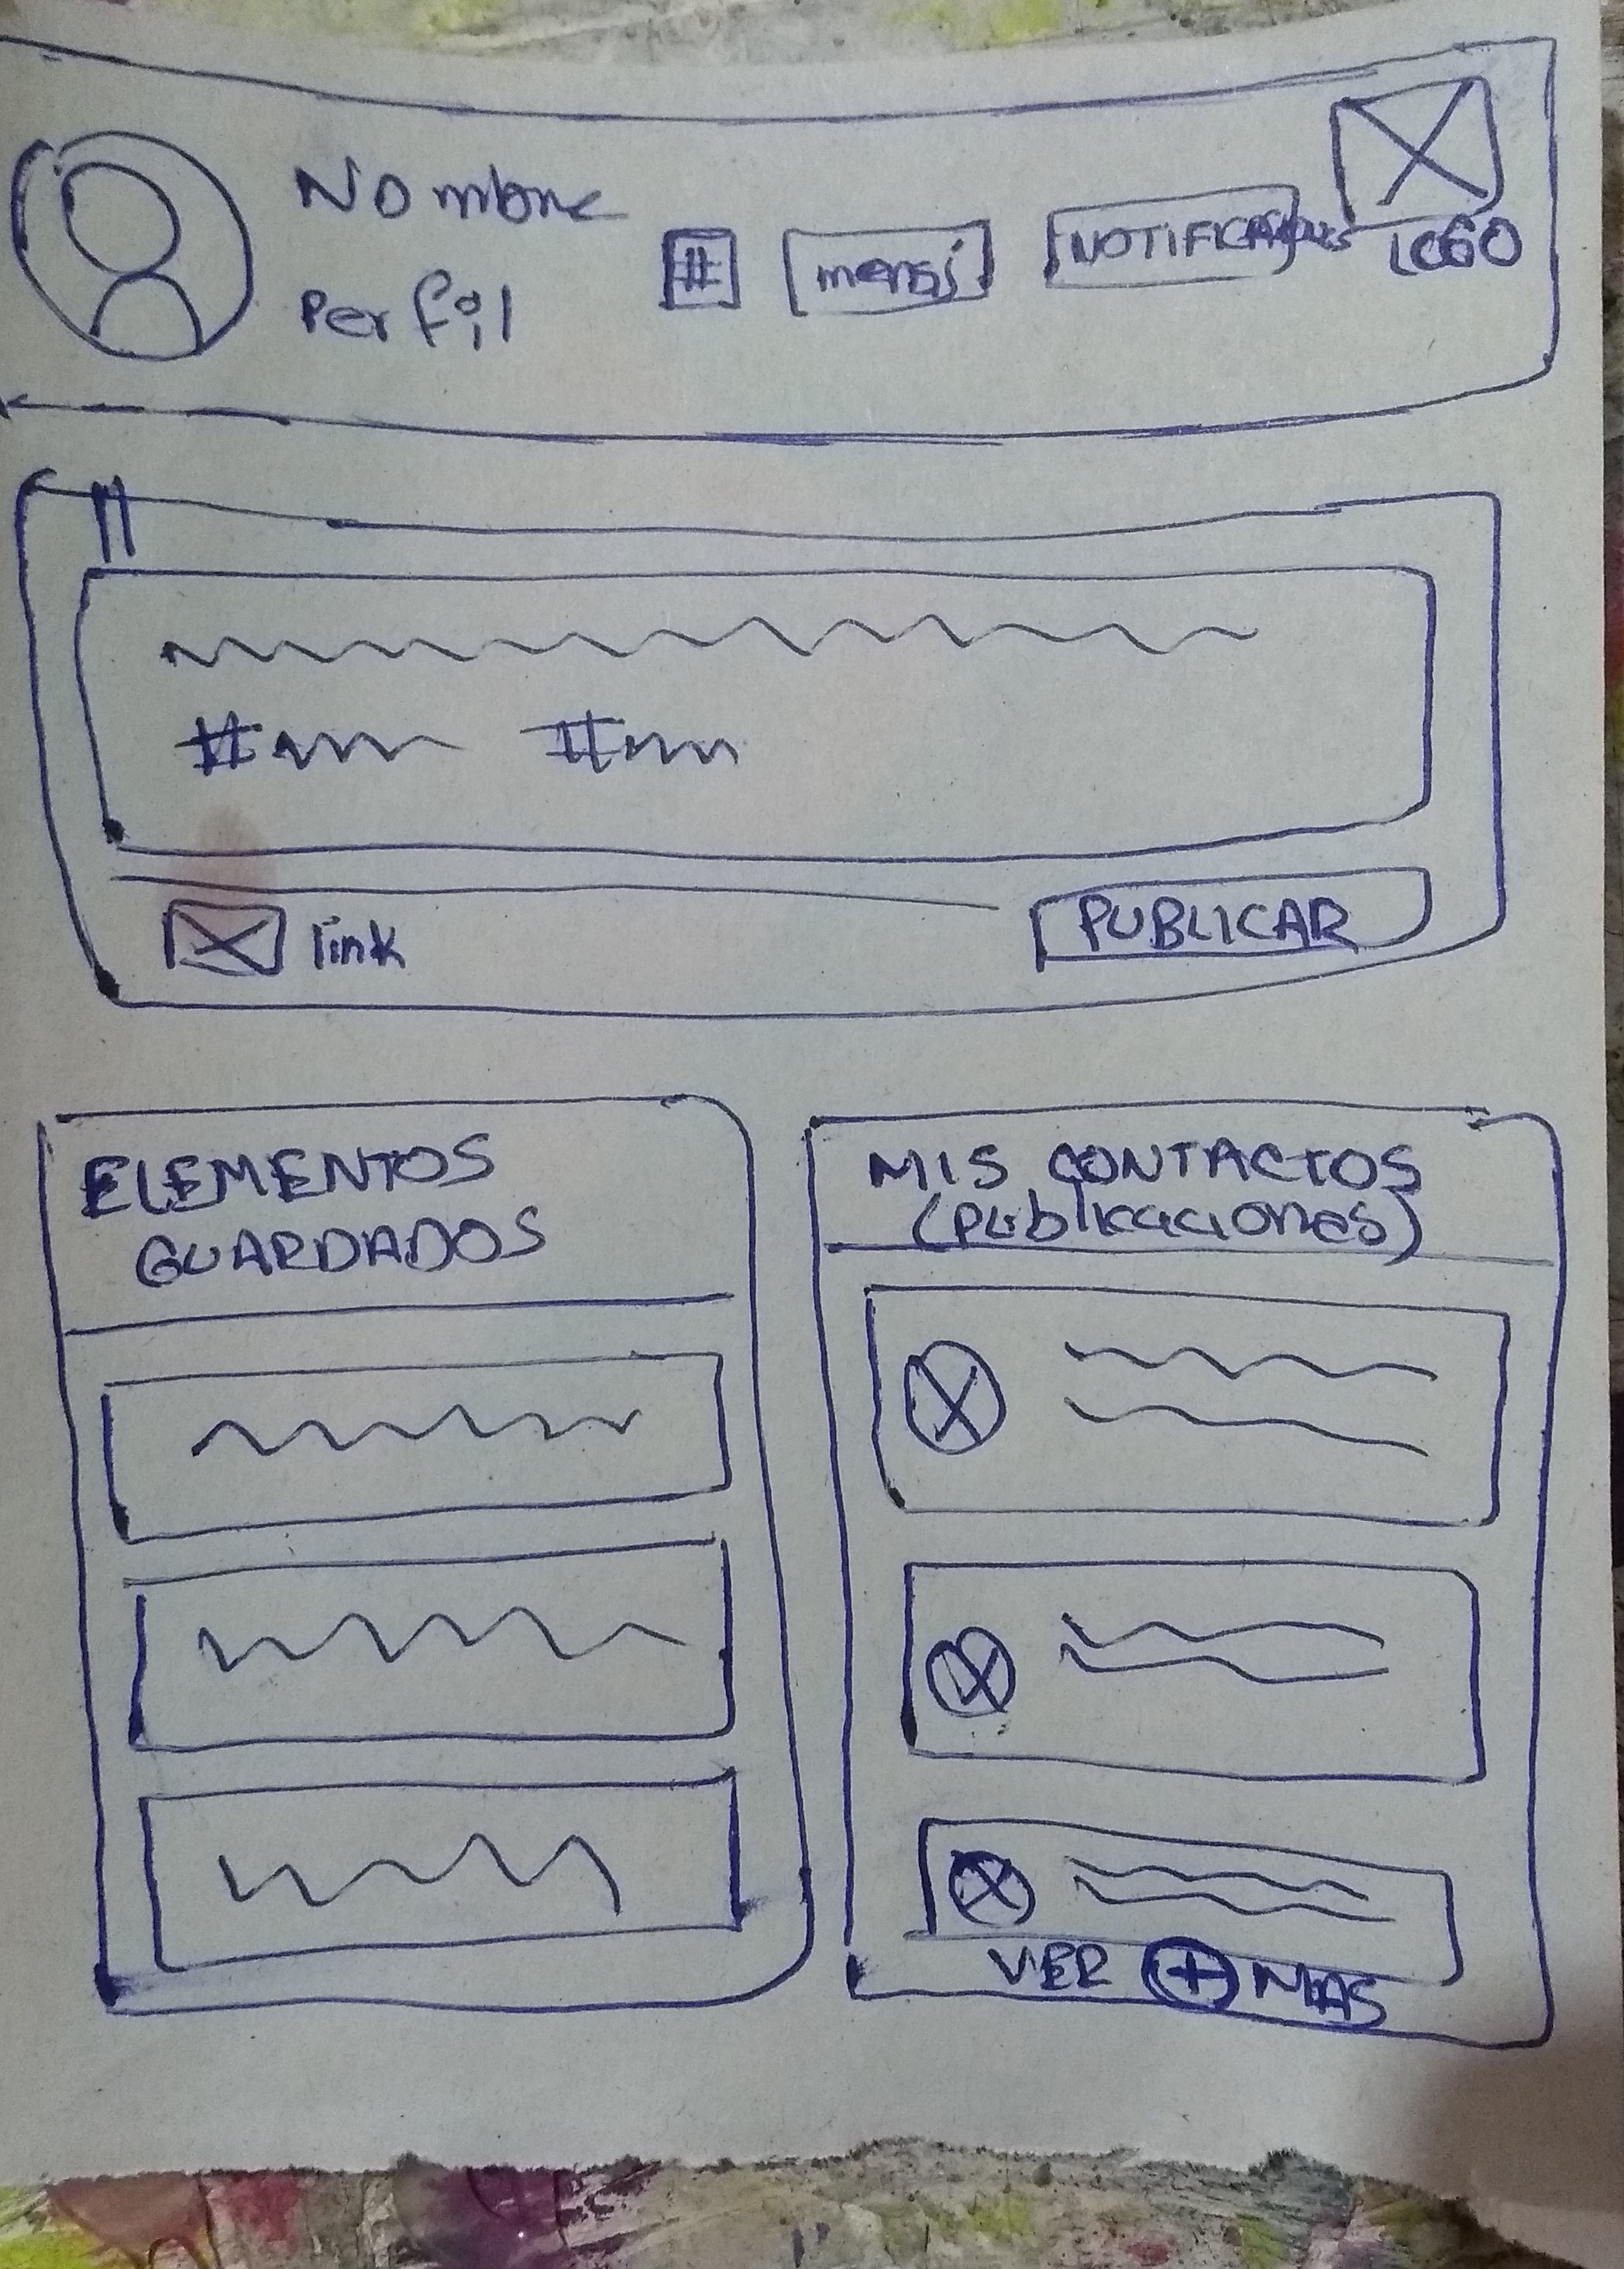 Nombre
Perfil
#
mensj
NOTIFICACIONES
LOGO
# #
link
PUBLICAR
ELEMENTOS
GUARDADOS
MIS CONTACTOS
(publicaciones)
VER + MAS